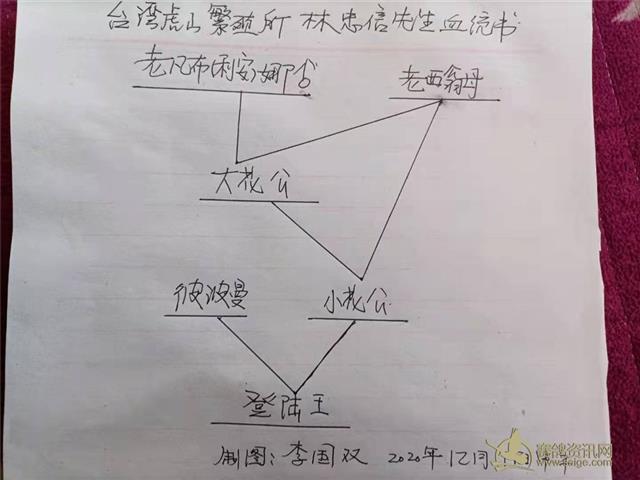 台湾虎山繁殖所 林忠信先生血统书
老凡布利安娜公 老西翁母
大花公
彼波曼 小花公
登陆王
制图:李国双 2020年12月
赛鸽资讯网
www.saige.com